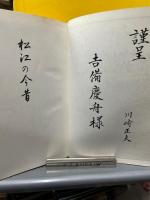 謹呈
吉備慶舟様
川崎正夫
松江の今昔